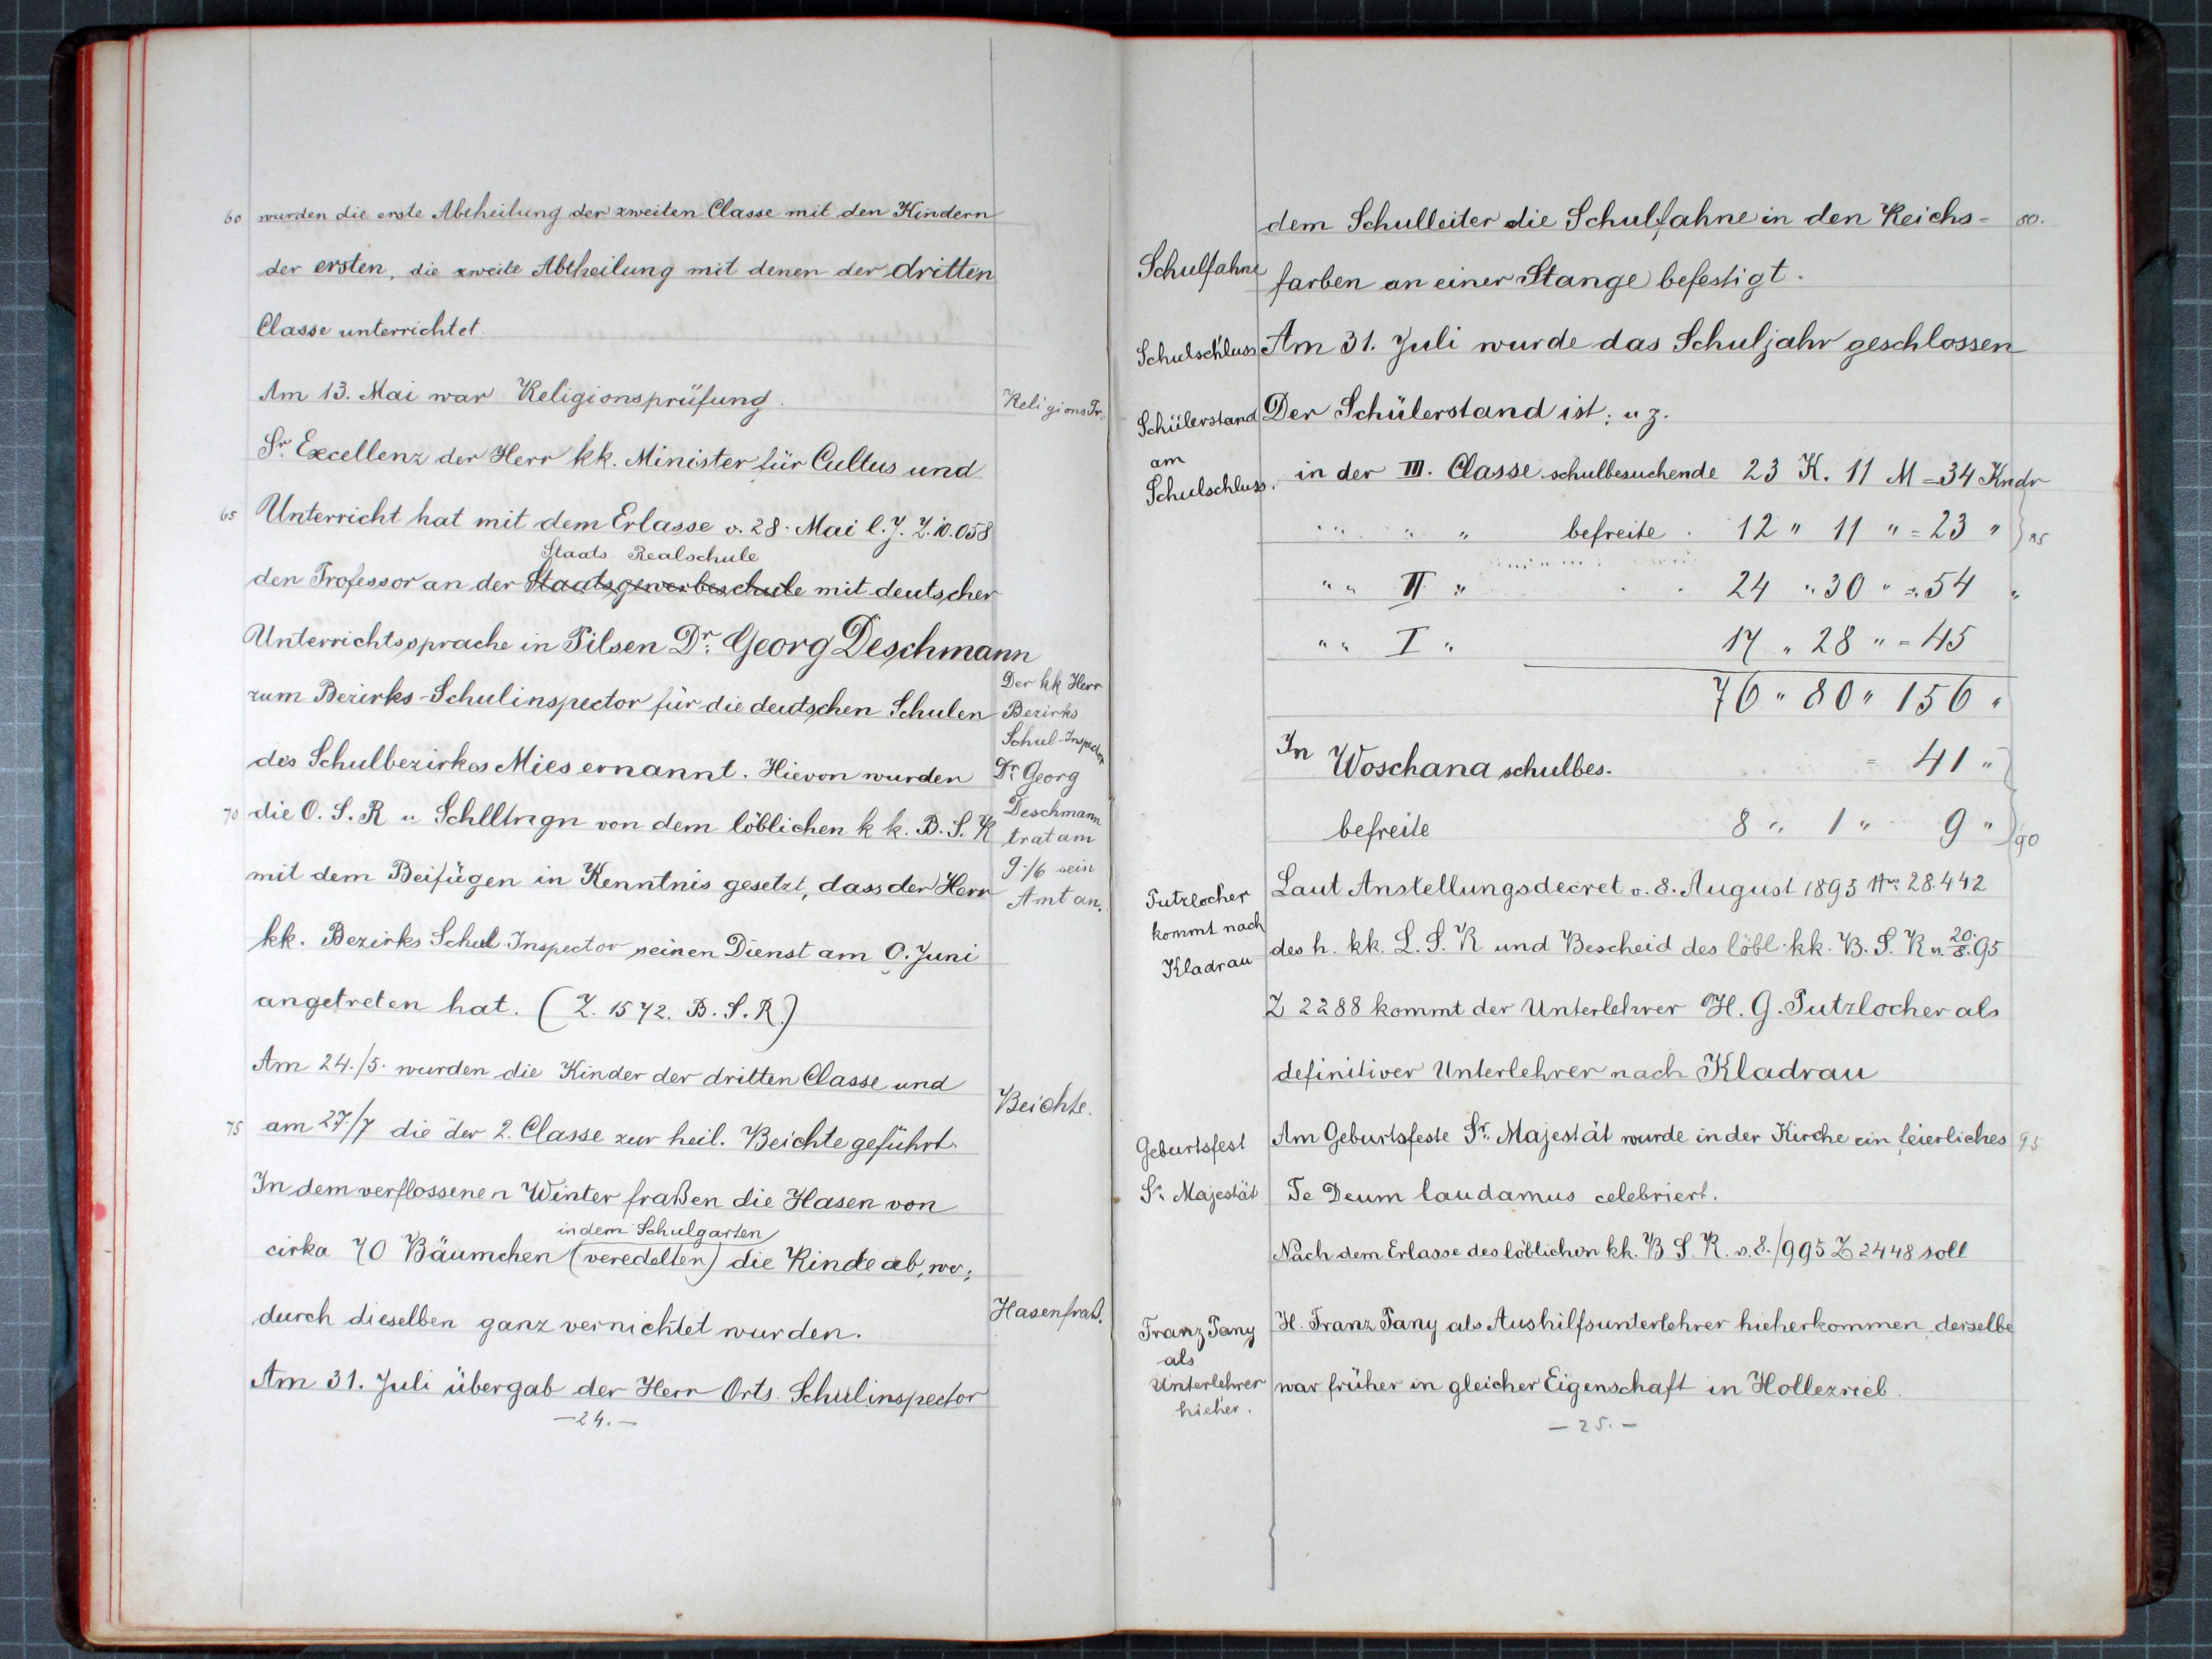 60 wurden die erste Abtheilung der zweiten Classe mit den Kindern
der ersten, die zweite Abtheilung mit denen der dritten
Classe unterrichtet.
Am 13. Mai war Religionsprüfung.
Religions Pr.
Sr. Excellenz der Herr kk. Minister für Cultus und
65 Unterricht hat mit dem Erlasse v. 28. Mai l. J. Z. 10.058
Staats Realschule
den Professor an der Staatsgewerbeschule mit deutscher
Unterrichtssprache in Pilsen Dr. Georg Deschmann
zum Bezirks-Schulinspector für die deutschen Schulen
des Schulbezirkes Mies ernannt. Hievon wurden
70 die O. S. R u Schlltngn von dem löblichen k k. B. S. R
mit dem Beifügen in Kenntnis gesetzt, dass der Herr
kk. Bezirks Schul Inspector seinen Dienst am 9. Juni
angetreten hat. (Z. 1572. B. S. R.)
Der kk Herr
Bezirks
Schul-Inspector
Dr. Georg
Deschmann
trat am
9./6 sein
Amt an.
Am 24./5. wurden die Kinder der dritten Classe und
75 am 27./7 die der 2. Classe zur heil. Beichte geführt.
Beichte.
In dem verflossenen Winter fraßen die Hasen von
in dem Schulgarten
cirka 70 Bäumchen (veredelten) die Rinde ab, wo-
durch dieselben ganz vernichtet wurden.
Hasenfraß.
Am 31. Juli übergab der Herr Orts. Schulinspector
-24.-
dem Schulleiter die Schulfahne in den Reichs- 80.
Schulfahne
farben an einer Stange befestigt.
Schulschluss
Am 31. Juli wurde das Schuljahr geschlossen
Schülerstand
am
Schulschluss.
Der Schülerstand ist; u z.
in der III. Classe schulbesuchende 23 K. 11 M = 34 Kndr
" " " befreite 12 " 11 " = 23 " 85
" " II " 24 " 30 " = 54 "
" " I " 17 " 28 " = 45
76 " 80 " 156 "
In Woschana schulbes. = 41 "
befreite 8 " 1 " 9 " 90
Putzlocher
kommt nach
Kladrau
Laut Anstellungsdecret v. 8. August 1895 28.442
des h. kk. L. S. R und Bescheid des löbl. kk. B. S. R v. 20./8. 95
Z 2288 kommt der Unterlehrer H. G. Putzlocher als
definitiver Unterlehrer nach Kladrau
Geburtsfest
Sr. Majestät
Am Geburtsfeste Sr. Majestät wurde in der Kirche ein feierliches 95
Te Deum laudamus celebriert.
Nach dem Erlasse des löblichen kk. B. S. R. v. 8./9 95 Z 2448 soll
Franz Pany
als
Unterlehrer
hieher.
H. Franz Pany als Aushilfsunterlehrer hieherkommen, derselbe
war früher in gleicher Eigenschaft in Hollezrieb.
- 25. -